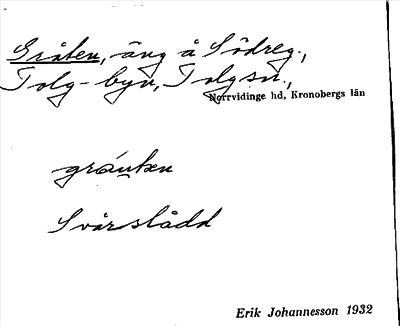 Gråten, äng å Södreg.,
Tolg-byn, Tolg sn.,
Norrvidinge hd, Kronobergs län
Svårslådd
Erik Johannesson 1932